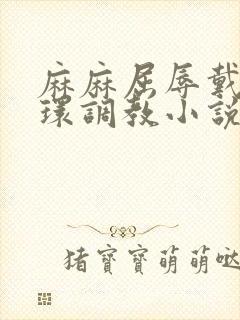 麻麻屈辱戴
環調教小說
猪寶寶萌萌哒